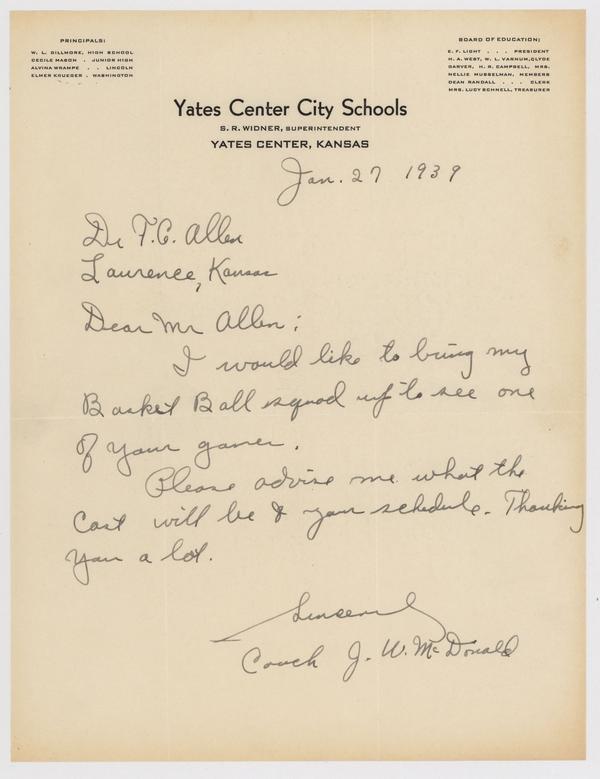 PRINCIPALS:
W. L. GILLMORE, HIGH SCHOOL
CECILE MASON . JUNIOR HIGH
ALVINA WRAMPE . . LINCOLN
ELMER KRUEGER . WASHINGTON
BOARD OF EDUCATION:
E. F. LIGHT . . . PRESIDENT
H. A. WEST, W. L. VARNUM, CLYDE
GARVER, H. R. CAMPBELL, MRS.
NELLIE MUSSELMAN, MEMBERS
DEAN RANDALL . . . CLERK
MRS. LUCY SCHNELL, TREASURER
Yates Center City Schools
S. R. WIDNER, SUPERINTENDENT
YATES CENTER, KANSAS
Jan. 27 1939
Dr F. C. Allen
Lawrence, Kansas
Dear Mr Allen:
I would like to bring my
Basket Ball squad up to see one
of your games.
Please advise me what the
cost will be & your schedule. Thanking
you a lot.
Sincerely
Coach J. W. McDonald